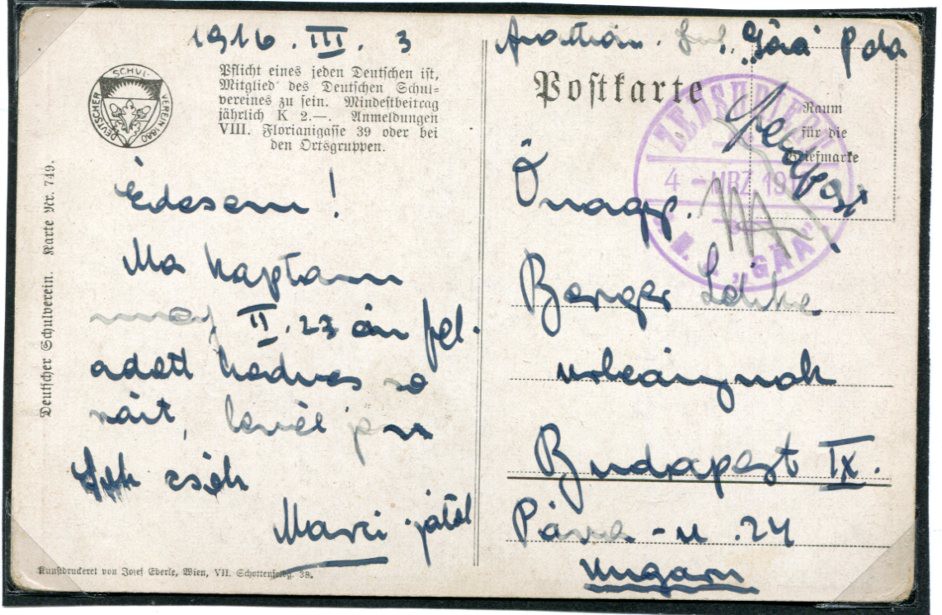 1916. III. 3
DEUTSCHER SCHUL-VEREIN 1880
Pflicht eines jeden Deutschen ist,
Mitglied des Deutschen Schul-
vereines zu sein. Mindestbeitrag
jährlich K 2.—. Anmeldungen
VIII. Florianigasse 39 oder bei
den Ortsgruppen.
Édesem!
Ma kaptam
meg II. 23 án fel-
adott kedves so
rait, levél jön
csók
Marci jától
Deutscher Schulverein. Karte Nr. 749.
Kunstdruckerei von Josef Eberle, Wien, VII. Schottenfeldg. 38.
"Gää" Pola
Postkarte
Raum
für die
Briefmarke
ZENSURIERT
4 - MRZ. 191
S. M. S. „GÄA"
Önagy.
Berger
urleánynak
Budapest IX.
Páva-u. 24
Ungarn